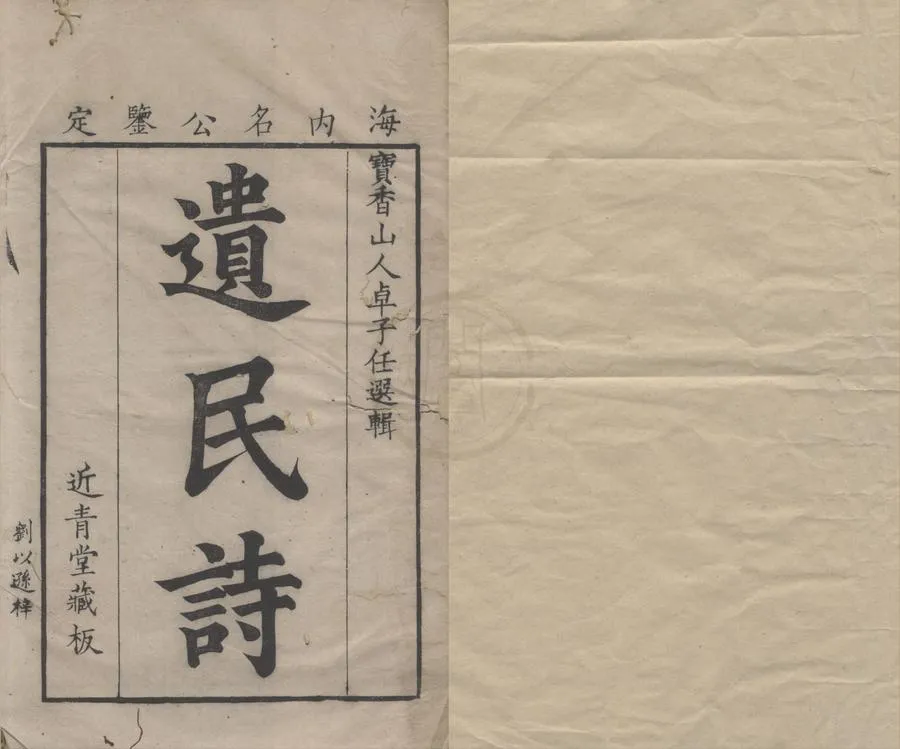 海內名公鑒定
寶香山人卓子任選輯
遺民詩
近青堂藏板
劉以遜梓